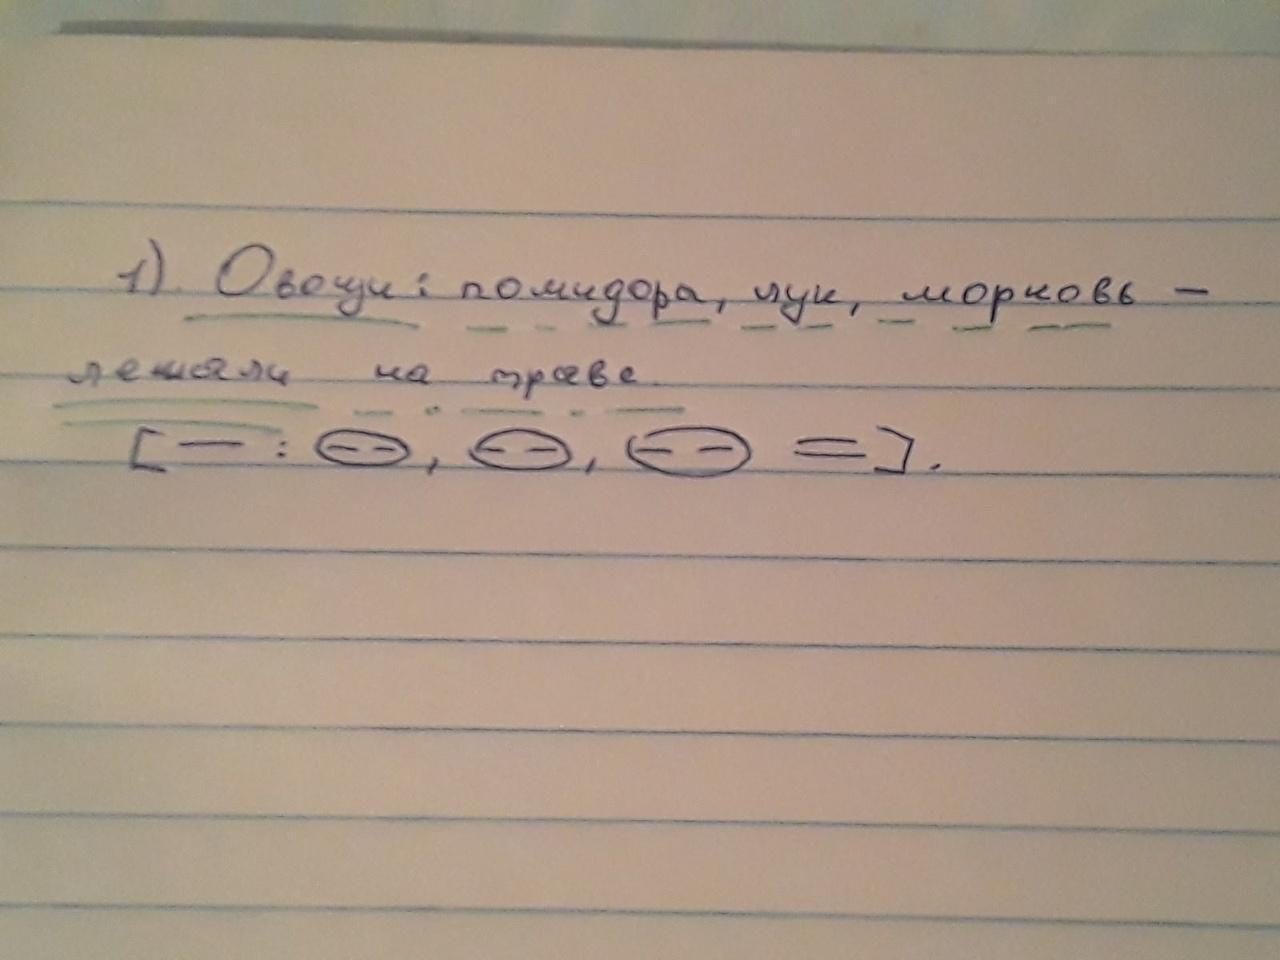 1) Овощи: помидора, лук, морковь –
лежали на траве.
[— : (– –), (– –), (– –) =].